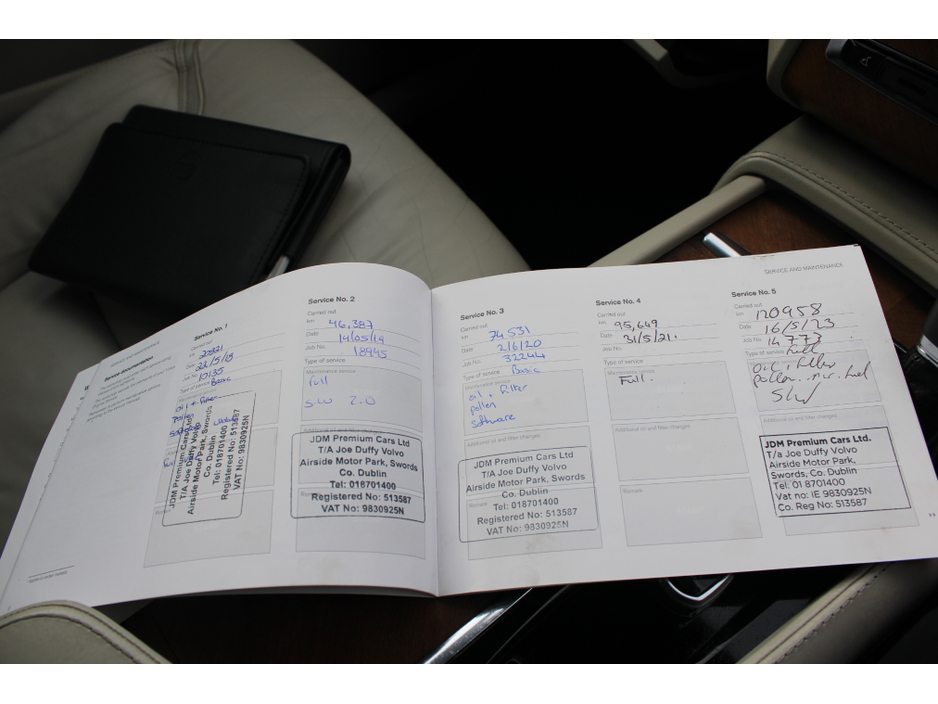 SERVICE AND MAINTENANCE
Service documentation
Service No. 1
Carried out
km
Date 22/5/18
Job No. 17135
Type of service Basic
oil + Filter
pollen
JDM Premium Cars Ltd
T/A Joe Duffy Volvo
Airside Motor Park, Swords
Co. Dublin
Tel: 018701400
Registered No: 513587
VAT No: 9830925N
Service No. 2
Carried out
km 46,387
Date 14/05/19
Job No. 18945
Type of service
Maintenance service
Full
S.W 2.0
JDM Premium Cars Ltd
T/A Joe Duffy Volvo
Airside Motor Park, Swords
Co. Dublin
Tel: 018701400
Registered No: 513587
VAT No: 9830925N
Service No. 3
Carried out
km 74531
Date 2/6/20
Job No. 32244
Type of service Basic
Maintenance service
oil + Filter
pollen
software
Additional oil and filter changes
JDM Premium Cars Ltd
T/A Joe Duffy Volvo
Airside Motor Park, Swords
Co. Dublin
Remark
Tel: 018701400
Registered No: 513587
VAT No: 9830925N
Service No. 4
Carried out
km 95,649
Date 31/5/21.
Job No.
Type of service
Maintenance service
Full.
Additional oil and filter changes
Remark
SERVICE AND MAINTENANCE
Service No. 5
Carried out
km 120958
Date 16/5/23
Job No. 14773
Type of service full
oil, filter
pollen.. air. fuel
S/W
Additional oil and filter changes
JDM Premium Cars Ltd.
T/a Joe Duffy Volvo
Airside Motor Park,
Swords, Co. Dublin
Tel: 01 8701400
Vat no: IE 9830925N
Co. Reg No: 513587